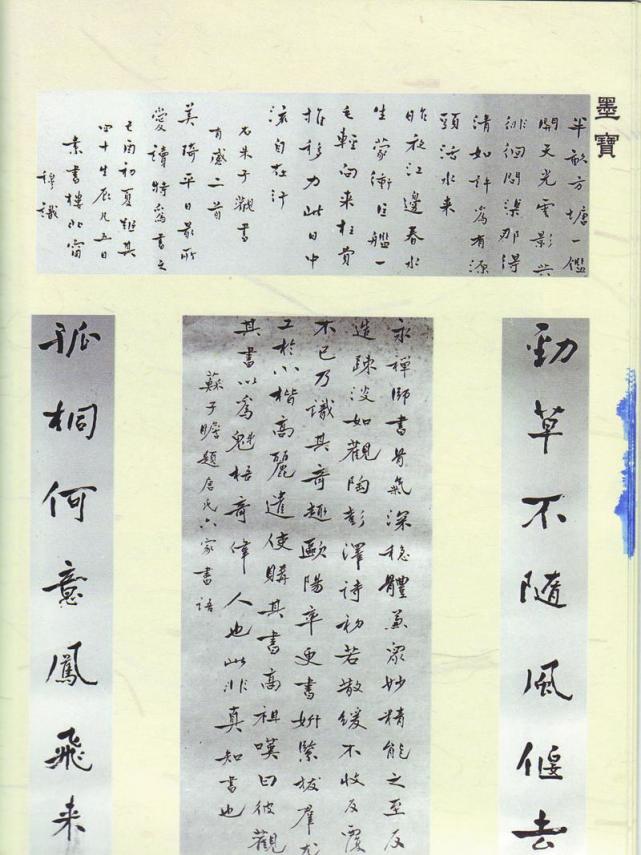 墨寶
半畝方塘一鑑
開天光雲影共
徘徊問渠那得
清如許為有源
頭活水來
昨夜江邊春水
生蒙衝巨艦一
毛輕向來枉費
推移力此日中
流自在行
右朱子觀書
有感二首
美琦平日最所
愛讀特為書之
己酉初夏其
四十生辰五日
素書樓北窗
穆識
勁草不隨風偃去
永禪師書骨氣深穩體兼眾妙精能之至反
造疎淡如觀陶彭澤詩初若散緩不收反覆
不已乃識其奇趣歐陽率更書妍緊拔群尤
工於小楷高麗遣使購其書高祖嘆曰彼觀
其書以為魁梧奇偉人也此非真知書也
蘇子瞻題唐氏六家書語
孤桐何意鳳飛來